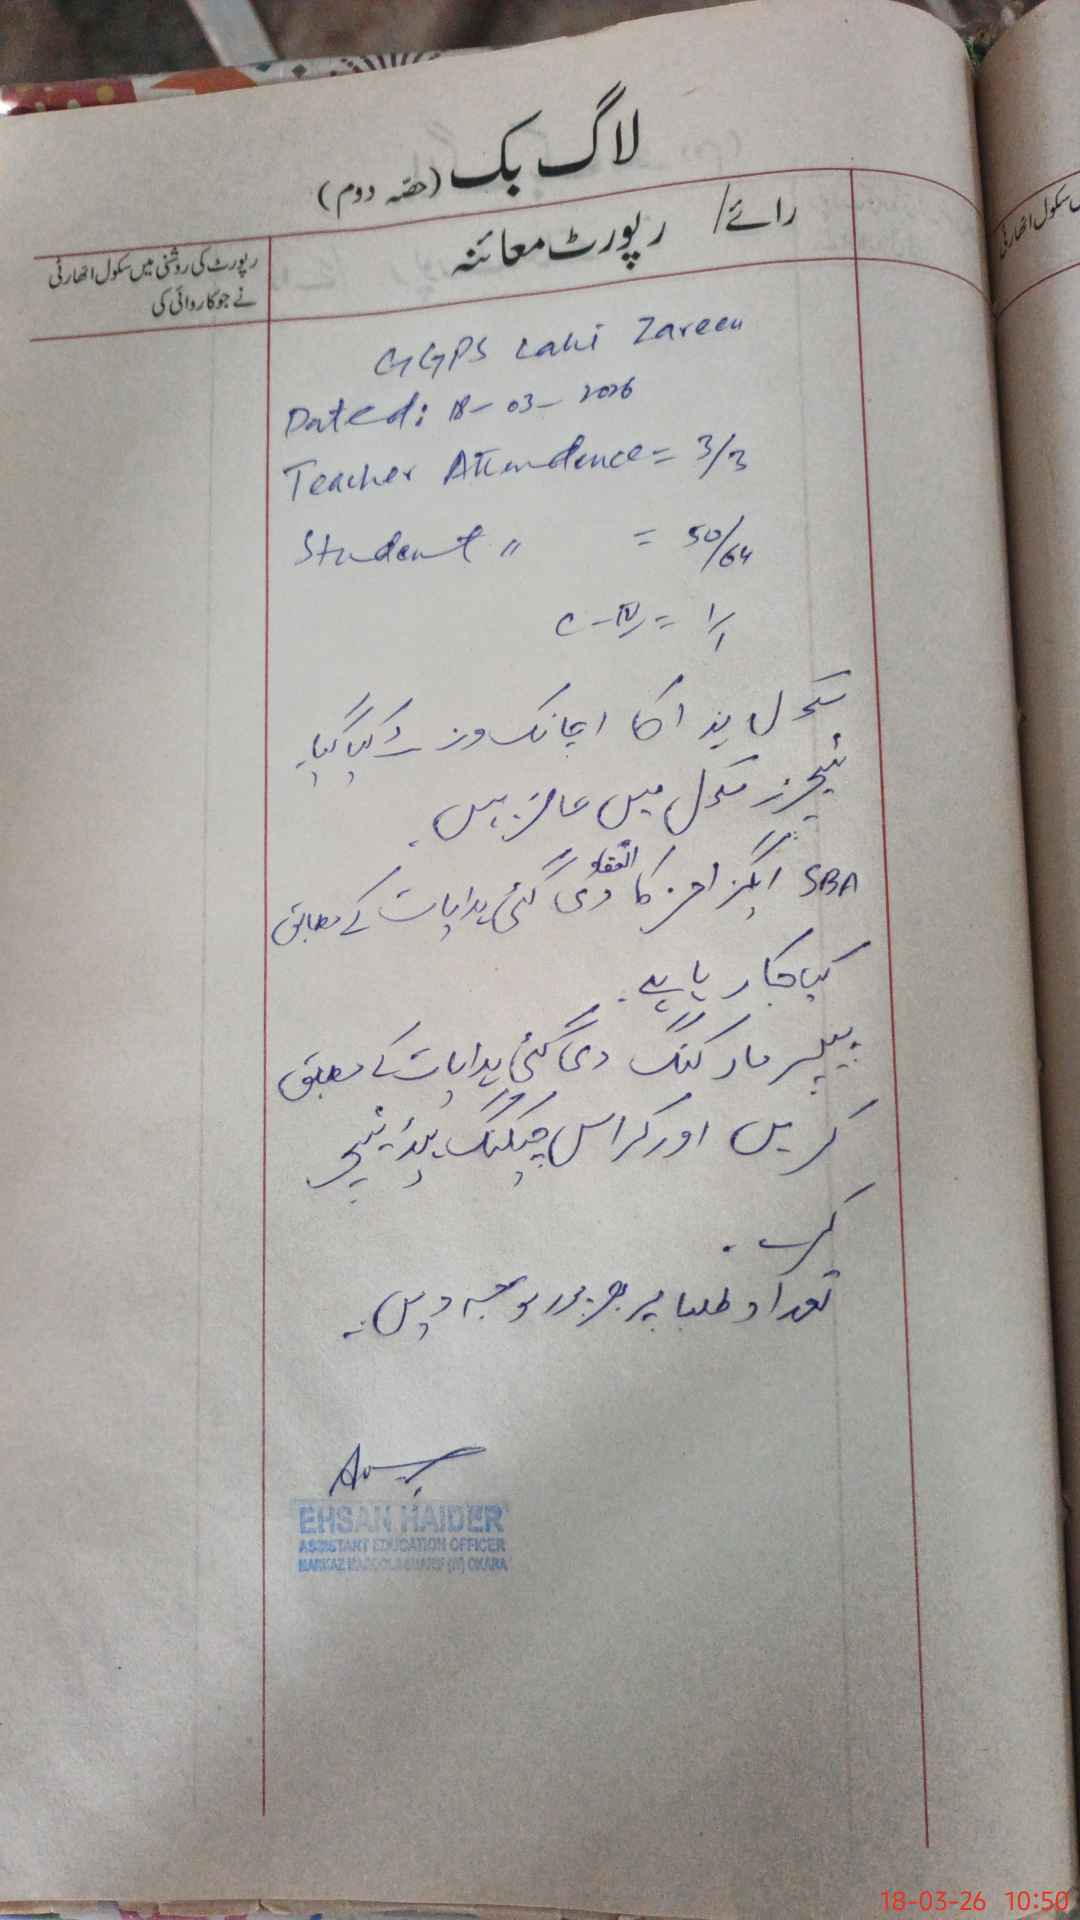 لاگ بک (حصّہ دوم)
رائے / رپورٹ معائنہ
رپورٹ کی روشنی میں سکول اتھارٹی
نے جو کاروائی کی
سکول اتھارٹی
GGPS Lahi Zareen
Dated: 18-03-2026
Teacher Attendence = 3/3
Student " = 50/64
C-IV = 1/1
سکول ہذا کا اچانک وزٹ کیا گیا۔
ٹیچرز سکول میں حاضر ہیں۔
SBA ایگزامز کا انعقاد دی گئی ہدایات کے مطابق
کیا جا رہا ہے۔
پیپر مارکنگ دی گئی ہدایات کے مطابق
کریں اور کراس چیکنگ ہیڈ ٹیچر
کرے۔
تعداد طلبا پر بھرپور توجہ دیں۔
EHSAN HAIDER
ASSISTANT EDUCATION OFFICER
MARKAZ (W) OKARA
18-03-26 10:50